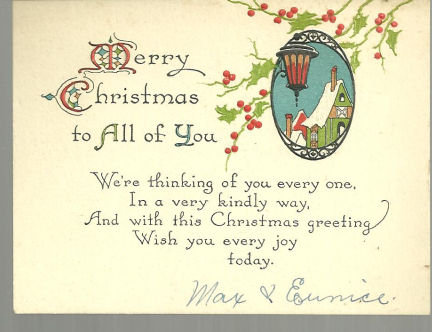 Merry
Christmas
to All of You
We're thinking of you every one,
In a very kindly way,
And with this Christmas greeting
Wish you every joy
today.
Max & Eunice.